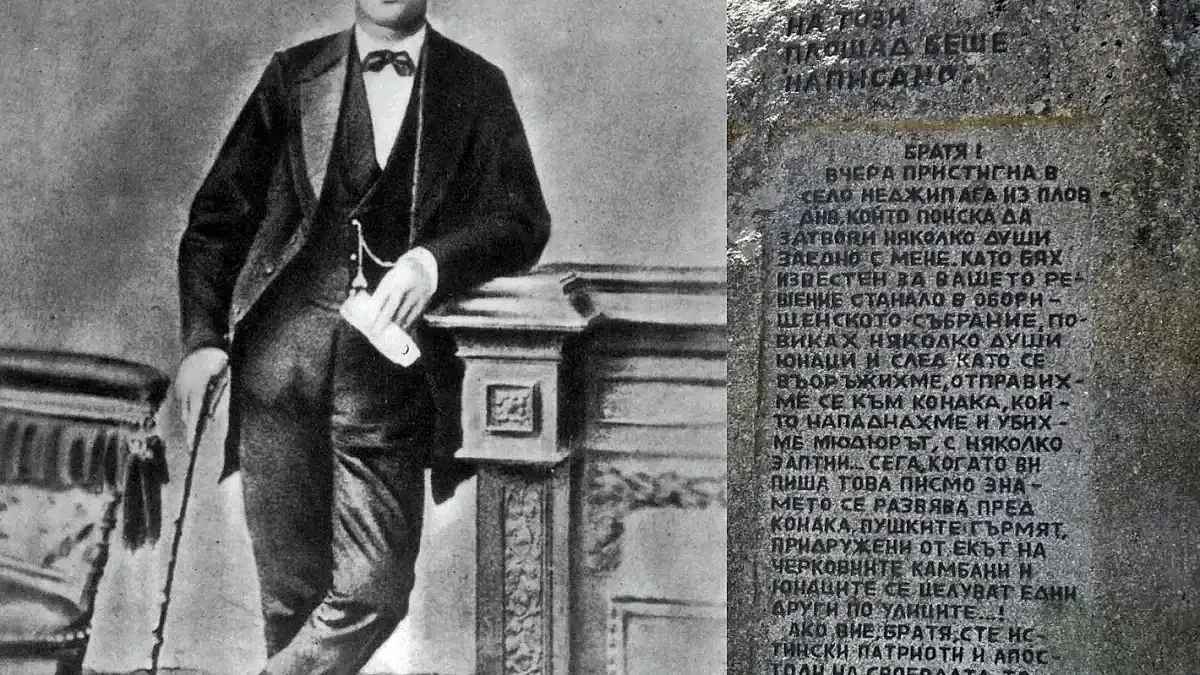 НА ТОЗИ
ПЛОЩАД БЕШЕ
НАПИСАНО:
БРАТЯ!
ВЧЕРА ПРИСТИГНА В
СЕЛО НЕДЖИП АГА ИЗ ПЛОВ-
ДИВ, КОЙТО ПОИСКА ДА
ЗАТВОРИ НЯКОЛКО ДУШИ
ЗАЕДНО С МЕНЕ. КАТО БЯХ
ИЗВЕСТЕН ЗА ВАШЕТО РЕ-
ШЕНИЕ СТАНАЛО В ОБОРИ-
ЩЕНСКОТО СЪБРАНИЕ, ПО-
ВИКАХ НЯКОЛКО ДУШИ
ЮНАЦИ И СЛЕД КАТО СЕ
ВЪОРЪЖИХМЕ, ОТПРАВИХ-
МЕ СЕ КЪМ КОНАКА, КОЙ-
ТО НАПАДНАХМЕ И УБИХ-
МЕ МЮДЮРЪТ, С НЯКОЛКО
ЗАПТИИ... СЕГА, КОГАТО ВИ
ПИША ТОВА ПИСМО ЗНА-
МЕТО СЕ РАЗВЯВА ПРЕД
КОНАКА, ПУШКИТЕ ГЪРМЯТ,
ПРИДРУЖЕНИ ОТ ЕКЪТ НА
ЧЕРКОВНИТЕ КАМБАНИ И
ЮНАЦИТЕ СЕ ЦЕЛУВАТ ЕДНИ
ДРУГИ ПО УЛИЦИТЕ...!
АКО ВИЕ, БРАТЯ, СТЕ ИС-
ТИНСКИ ПАТРИОТИ И АПОС-
ТОЛИ НА СВОБОДАТА, ТО